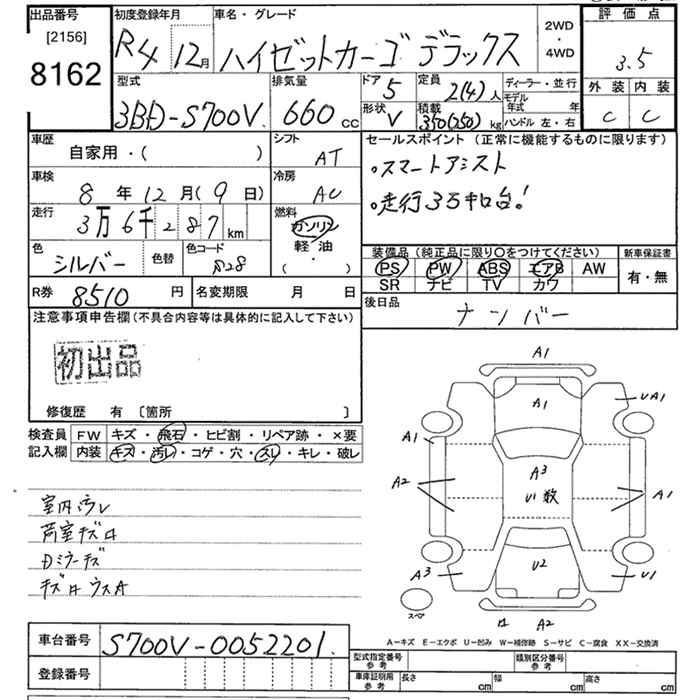 出品番号
[2156]
8162
初度登録年月
R4 12月
車名・グレード
ハイゼットカーゴ デラックス
2WD
・
4WD
評価点
3.5
外装 内装
C C
型式
3BD-S700V
排気量
660 cc
ドア
5
定員
2(4)人
形状
V
積載
350(250)kg
ディーラー・並行
モデル
年式 年
ハンドル 左・右
車歴
自家用・( )
シフト
AT
車検
8年12月(9日)
冷房
AC
走行
3万6千287km
燃料
ガソリン
軽油
( ・ )
色
シルバー
色替
色コード
S28
R券
8510円
名変期限 月 日
セールスポイント(正常に機能するものに限ります)
・スマートアシスト
・走行3万キロ台!
装備品(純正品に限り○をつけてください)
PS PW ABS エアB AW
SR ナビ TV カワ
新車保証書
有・無
後日品
ナンバー
注意事項申告欄(不具合内容等は具体的に記入して下さい)
初出品
修復歴 有 〔箇所 〕
検査員
記入欄
FW キズ・飛石・ヒビ割・リペア跡・×要
内装 キズ・汚レ・コゲ・穴・スレ・キレ・破レ
室内汚レ
荷室キズロ
Dミラーキズ
キズロ ウスA
A1
A1
UA1
A1
A3
U1数
A2
A1
U2
A3
U1
スペア
ロ A2
A-キズ E-エクボ U-凹み W-補修跡 S-サビ C-腐食 XX-交換済
車台番号
S700V-0052201
登録番号
型式指定番号
参考
類別区分番号
参考
車庫証明用
参考
長さ cm 幅 cm 高さ cm